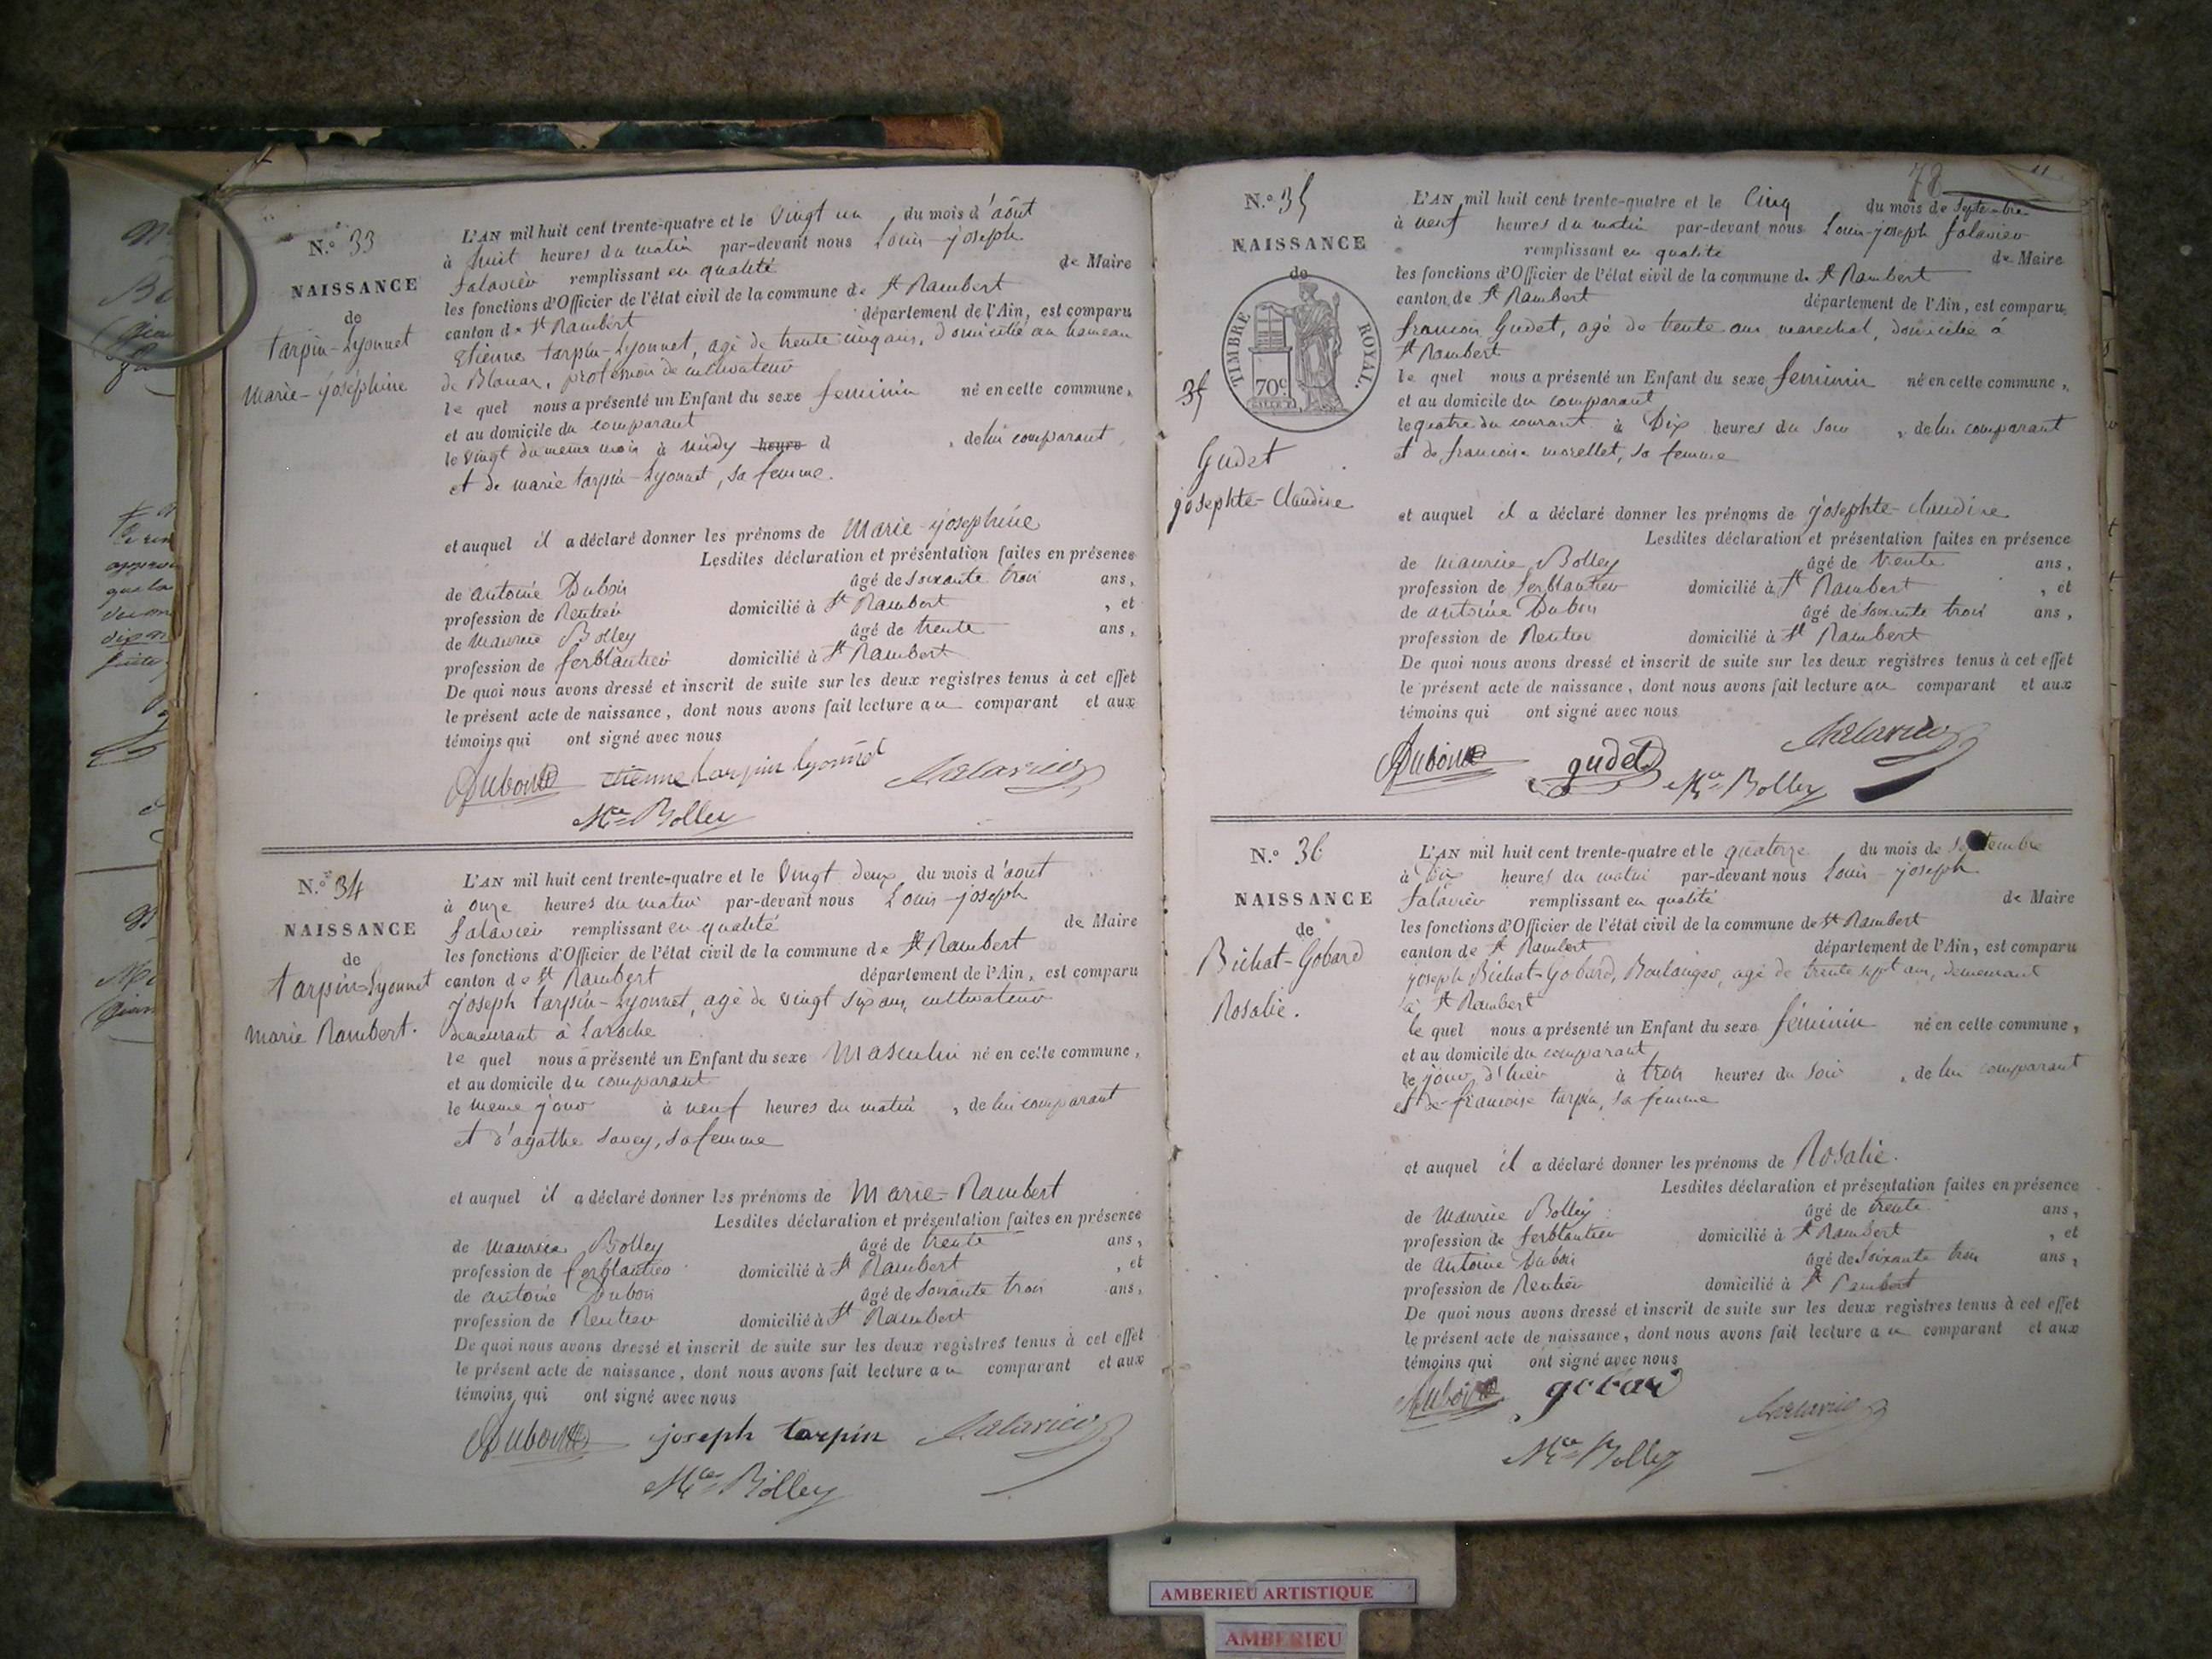 N.º 33
NAISSANCE
de
tarpin-Lyonnet
Marie-joséphine
L'AN mil huit cent trente-quatre et le Vingt un du mois d'août
à huit heures du matin par-devant nous Louis-joseph
falavier remplissant en qualité de Maire
les fonctions d'Officier de l'état civil de la commune de St Rambert
canton de St Rambert département de l'Ain, est comparu
Etienne tarpin-Lyonnet, agé de trente cinq ans, domicilié au hameau
de Blanaz, profession de cultivateur
le quel nous a présenté un Enfant du sexe feminin né en cette commune,
et au domicile du comparant
le vingt du même mois à midy heure d , de lui comparant
et de marie tarpin-Lyonnet, sa femme.
et auquel il a déclaré donner les prénoms de Marie-josephine
Lesdites déclaration et présentation faites en présence
de antoine Dubois âgé de soixante trois ans,
profession de Rentier domicilié à St Rambert , et
de Maurice Bolley âgé de trente ans,
profession de ferblantier domicilié à St Rambert
De quoi nous avons dressé et inscrit de suite sur les deux registres tenus à cet effet
le présent acte de naissance, dont nous avons fait lecture au comparant et aux
témoins qui ont signé avec nous
Dubois etienne tarpin lyonnet falavier
Mce Bolley
N.º 34
NAISSANCE
de
tarpin-Lyonnet
marie Rambert.
L'AN mil huit cent trente-quatre et le Vingt deux du mois d'aout
à onze heures du matin par-devant nous Louis-joseph
falavier remplissant en qualité de Maire
les fonctions d'Officier de l'état civil de la commune de St Rambert
canton de St Rambert département de l'Ain, est comparu
joseph tarpin-Lyonnet, agé de vingt six ans, cultivateur
demeurant à Laroche
le quel nous a présenté un Enfant du sexe Masculin né en cette commune,
et au domicile du comparant
le meme jour à neuf heures du matin , de lui comparant
et d'agathe savey, sa femme
et auquel il a déclaré donner les prénoms de Marie-Rambert
Lesdites déclaration et présentation faites en présence
de maurice Bolley âgé de trente ans,
profession de ferblantier domicilié à St Rambert , et
de antoine Dubois âgé de soixante trois ans,
profession de Rentier domicilié à St Rambert
De quoi nous avons dressé et inscrit de suite sur les deux registres tenus à cet effet
le présent acte de naissance, dont nous avons fait lecture au comparant et aux
témoins qui ont signé avec nous
Dubois joseph tarpin falavier
Mce Bolley
78
N.º 35
NAISSANCE
de
TIMBRE ROYAL.
70c
35
Gudet
josephte-Claudine
L'AN mil huit cent trente-quatre et le Cinq du mois de septembre
à neuf heures du matin par-devant nous Louis-joseph falavier
remplissant en qualité de Maire
les fonctions d'Officier de l'état civil de la commune de St Rambert
canton de St Rambert département de l'Ain, est comparu
francois Gudet, agé de trente ans marechal, domicilié à
St Rambert
le quel nous a présenté un Enfant du sexe feminin né en cette commune,
et au domicile du comparant
le quatre du courant à Dix heures du soir , de lui comparant
et de francoise morellet, sa femme
et auquel il a déclaré donner les prénoms de josephte-claudine
Lesdites déclaration et présentation faites en présence
de maurice Bolley âgé de trente ans,
profession de ferblantier domicilié à St Rambert , et
de antoine Dubois âgé de soixante trois ans,
profession de Rentier domicilié à St Rambert
De quoi nous avons dressé et inscrit de suite sur les deux registres tenus à cet effet
le présent acte de naissance, dont nous avons fait lecture au comparant et aux
témoins qui ont signé avec nous
Dubois gudet Mce Bolley falavier
N.º 36
NAISSANCE
de
Bichat-Gobard
Rosalie.
L'AN mil huit cent trente-quatre et le quatorze du mois de septembre
à Dix heures du matin par-devant nous Louis-joseph
falavier remplissant en qualité de Maire
les fonctions d'Officier de l'état civil de la commune de St Rambert
canton de St Rambert département de l'Ain, est comparu
joseph Bichat-Gobard, Boulanger, agé de trente sept ans, demeurant
à St Rambert
le quel nous a présenté un Enfant du sexe féminin né en cette commune,
et au domicile du comparant
le jour d'hier à trois heures du soir , de lui comparant
et de francoise tarpin, sa femme
et auquel il a déclaré donner les prénoms de Rosalie.
Lesdites déclaration et présentation faites en présence
de Maurice Bolley âgé de trente ans,
profession de ferblantier domicilié à St Rambert , et
de antoine Dubois âgé de soixante trois ans,
profession de Rentier domicilié à St Rambert
De quoi nous avons dressé et inscrit de suite sur les deux registres tenus à cet effet
le présent acte de naissance, dont nous avons fait lecture au comparant et aux
témoins qui ont signé avec nous
Dubois gobard falavier
Mce Bolley
AMBERIEU ARTISTIQUE
AMBERIEU